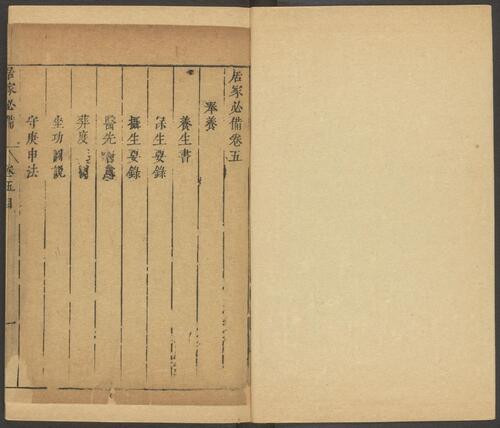 居家必備卷五
奉養
養生書
保生要錄
攝生要錄
醫先
弉度
坐功圖説
守庚申法
居家必備
卷五目
一